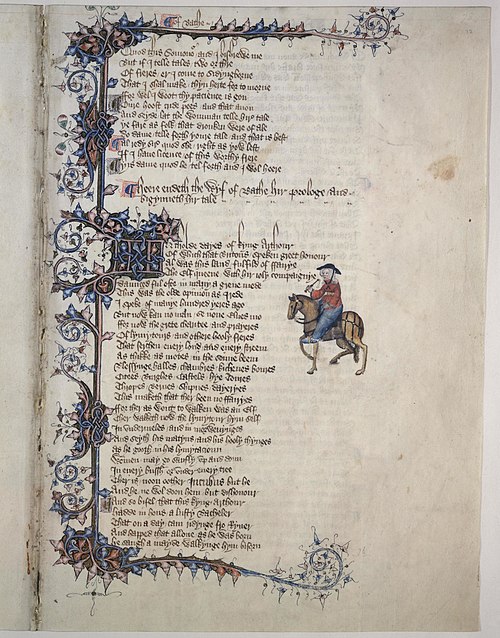 Bathe
Quod this Somonour and I bishrewe me
But if I telle tales two or thre
Of freres er I come to Sidyngborne
That I shal make thyn herte for to morne
For wel I woot thy pacience is gon
Oure hoost cride pees and that anon
And seyde lat the womman telle hire tale
Ye fare as folk that dronken were of ale
Do dame telle forth youre tale and that is best
Al redy sire quod she right as yow lest
If I have licence of this worthy frere
Yis dame quod he tel forth and I wol heere
Heere endeth the Wyf of Bathe hir prologe And
bigynneth hir tale
In tholde dayes of kyng Arthour
Of which that Britons speken greet honour
Al was this land fulfild of fairye
The elf queene with hir joly compaignye
Daunced ful ofte in many a grene mede
This was the olde opinion as I rede
I speke of manye hundred yeres ago
But now kan no man se none elves mo
For now the grete charitee and prayeres
Of lymytours and othere hooly freres
That serchen every lond and every streem
As thikke as motes in the sonne beem
Blessynge halles chambres kichenes boures
Citees Burghes Castels hye Toures
Thropes Bernes Shipnes Dayeryes
This maketh that ther been no fairyes
For ther as wont to walken was an Elf
Ther walketh now the lymytour hym self
In undermeles and in morwenynges
And seyth his matyns and his hooly thynges
As he gooth in his lymytacioun
Wommen may go saufly up and doun
In every bussh or under every tree
Ther is noon oother Incubus but he
And he ne wol doon hem but dishonour
And so bifel that this kyng Arthour
Hadde in hous a lusty Bacheler
That on a day cam ridynge fro Ryver
And happed that allone as he was born
He saugh a mayde walkynge hym biforn